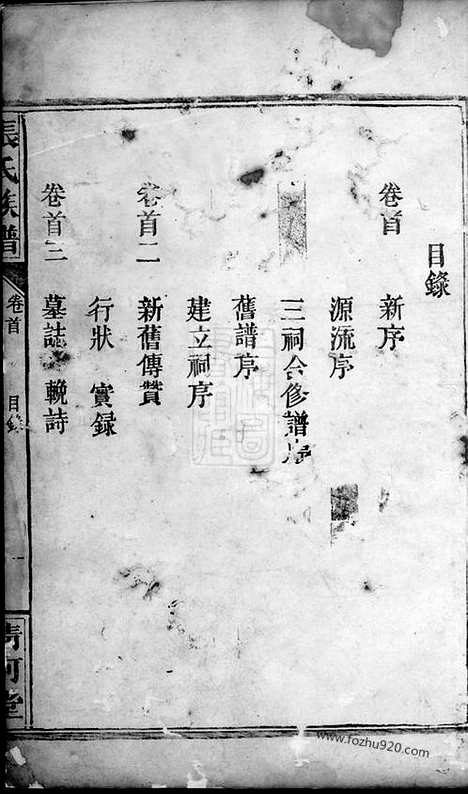 目錄
卷首　新序
源流序
三祠合修譜序
舊譜序
建立祠序
卷首二　新舊傳贊
行狀　實録
卷首三　墓誌　輓詩
張氏族譜　卷首　目錄　一　清河堂
www.fozhu920.com